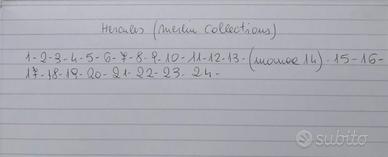 Hercules (Merlin Collections)
1-2-3-4-5-6-7-8-9-10-11-12-13-(manca 14)-15-16-
17-18-19-20-21-22-23-24-
subito